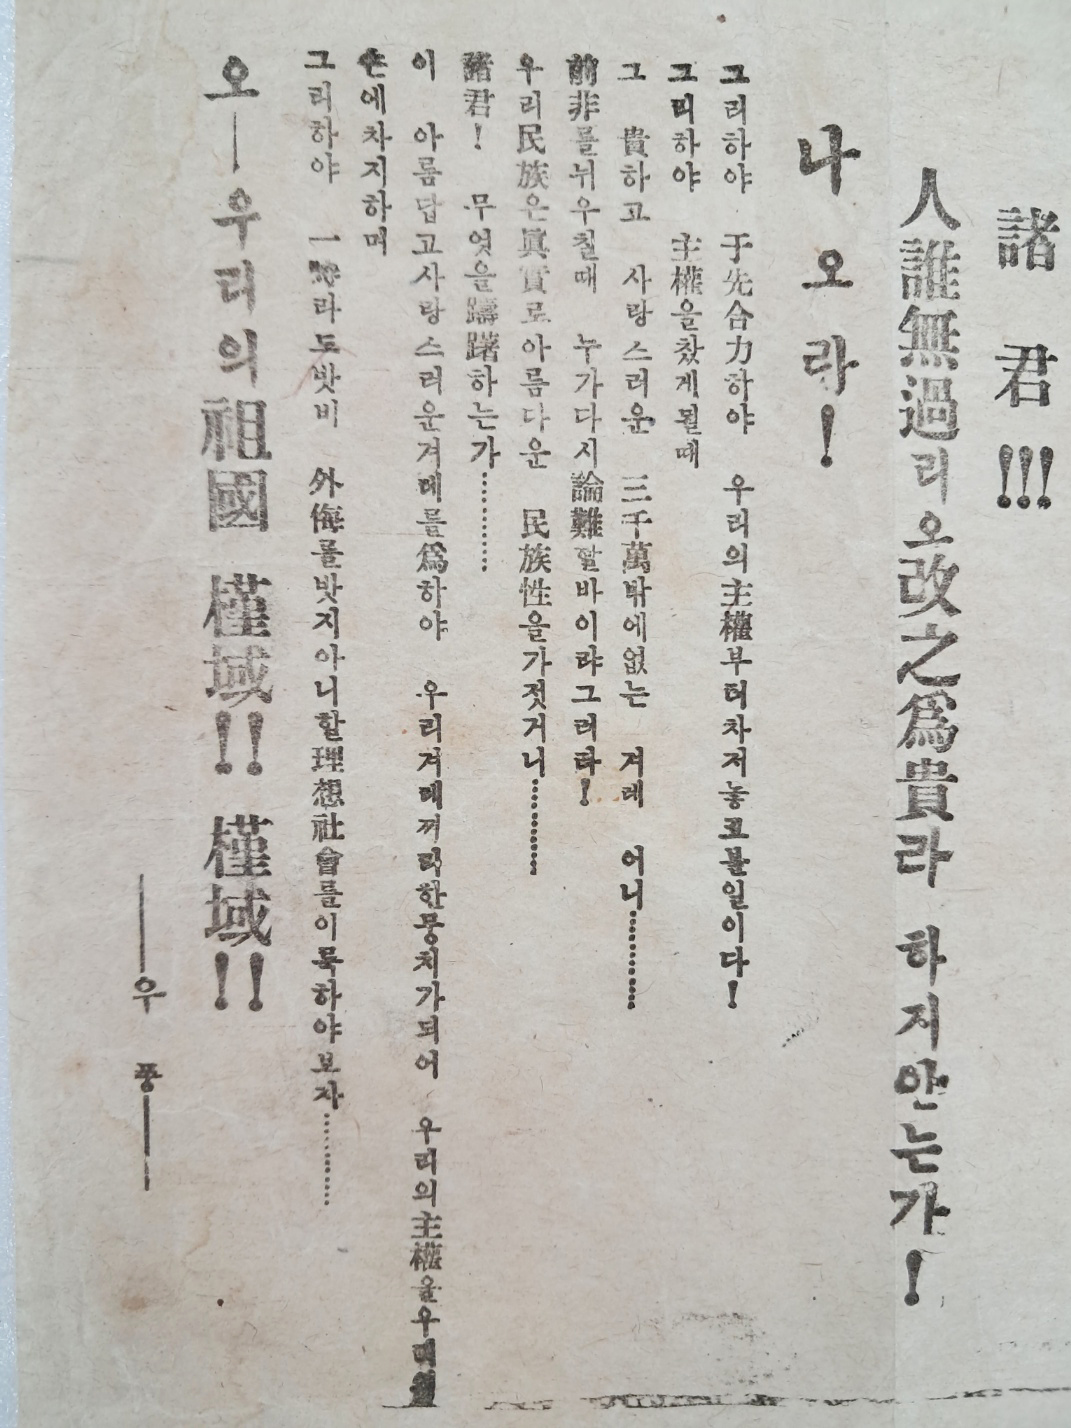 諸君!!!
人誰無過리오改之爲貴라 하지안는가!
나오라!
그리하야 于先合力하야 우리의主權부터차저놓고볼일이다!
그리하야 主權을찼게될때
그 貴하고 사랑스러운 三千萬밖에없는 겨레 어니…………
前非를뉘우칠때 누가다시論難할바이랴그러타!
우리民族은眞實로아름다운 民族性을가젓거니…………
諸君! 무엇을躊躇하는가…………
이 아름답고사랑스러운겨레를爲하야 우리겨레끼리한뭉치가되어 우리의主權을우리
손에차지하며
그리하야 一라도밧비 外侮를밧지아니할理想社會를이룩하야보자…………
오―우리의祖國 槿域!! 槿域!!
――우 쭝――